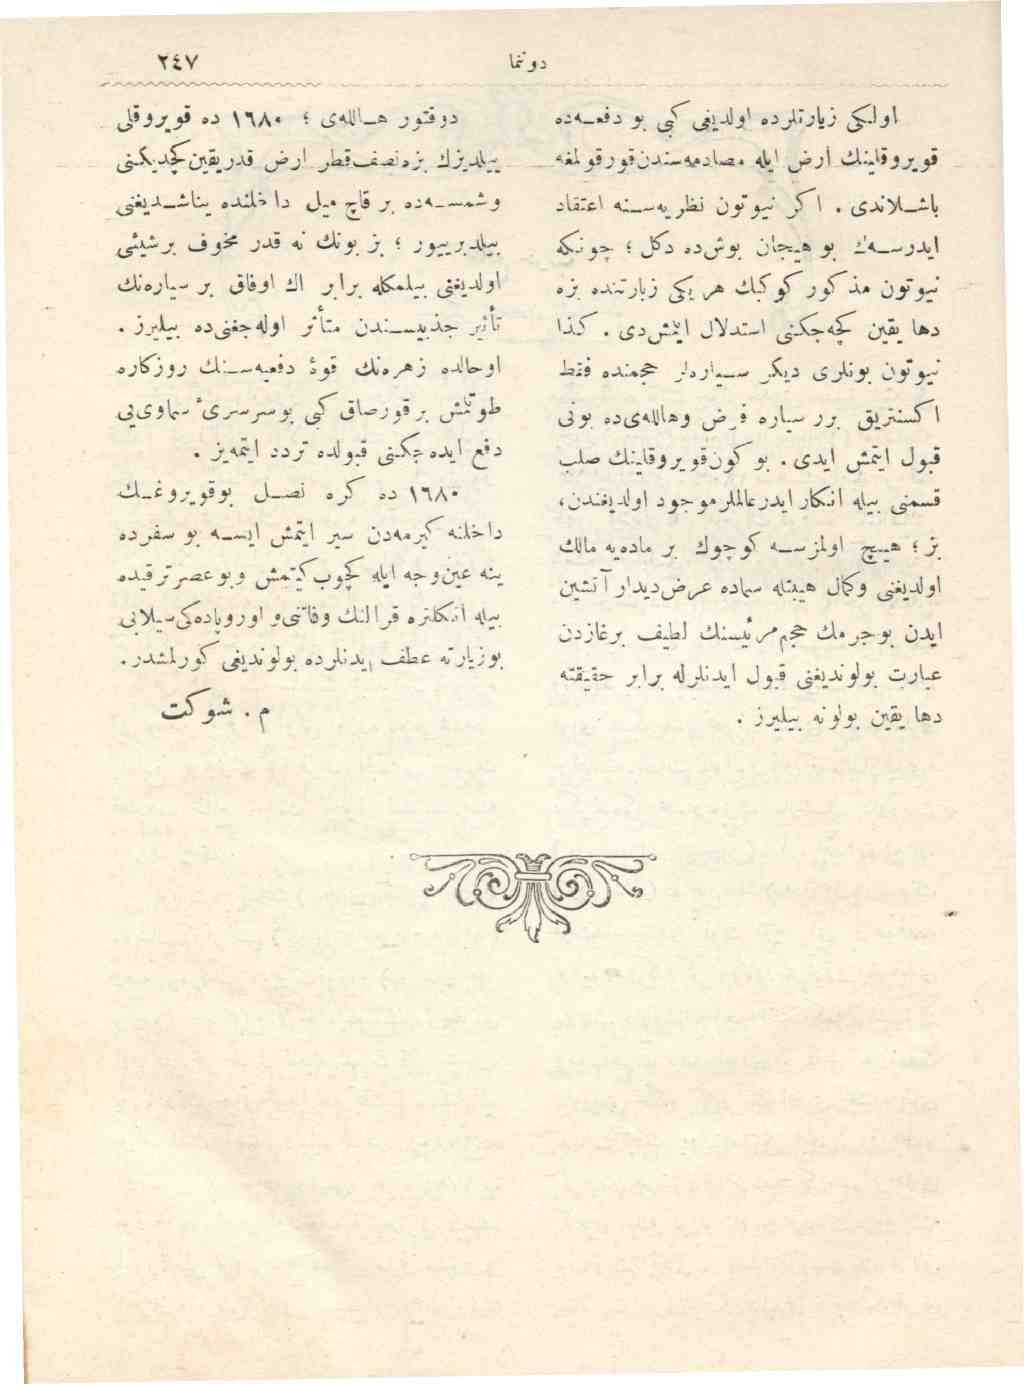 دوننما
٢٤٧
اولـكى زيارتلرده اولديغى كبى بو دفعـه‌ده
قويروقلينك ارض ايله مصادمه‌سندن قورقولمغه
باشـلاندى . اكر نيوتون نظريه‌سـنه اعتقاد
ايدرسـه‌ك بو هيجان بوش‌ده دكل ؛ چونكه
نيوتون مذكور كوكبك هر يكى زيارتنده بزه
دها يقين كچه‌جكنى استدلال ايتمش‌دى . كذا
نيوتون بونلرى ديكر سـياره‌لر حجمنده فقط
اكسنتريق برر سياره فرض وهالله‌ى‌ده بونى
قبول ايتمش ايدى . بو كون قويروقلينك صلب
قسمنى بيله انكار ايدر عالملر موجود اولديغندن،
بز ؛ هيـچ اولمزسـه كوچوك بر ماده‌يه مالك
اولديغنى وكمال هيبتله سماده عرض ديدار آتشين
ايدن بوجرمك حجم مرئيسنك لطيف برغازدن
عبارت بولونديغنى قبول ايدنلرله برابر حقيقته
دها يقين بولونه بيليرز .
دوقتور هـالله‌ى ؛ ١٦٨٠ ده قويروقلى
ييلديزك بزه نصف قطر ارض قدر يقين كچديكـنى
وشمسـه‌ده بر قاچ ميل داخلنده يناشـديغنى
بيلديرييور ؛ بز بونك نه قدر مخوف برشيئى
اولديغنى بيلمكله برابر اك اوفاق بر سياره‌نك
تأثير جذبيسـندن متأثر اوله‌جغنى‌ده بيليرز .
اوحالده زهره‌نك قوۀ دفعيه‌سـنك روزكاره
طوتلمش بر قورصاق كبى بو سرسرىٔ سماوى‌يى
دفع ايده‌جكـنى قبولده تردد ايتمه‌يز .
١٦٨٠ ده كره نصـل بوقويروغـك
داخلنه كيرمه‌دن سير ايتمش ايسـه بو سفرده
ينه عين‌وجه ايله كچوب كيتمش وبو عصر ترقيده
بيله انكلتره قرالنك وفاتنى و اوروپاده‌كى سيلابى
بوزيارته عطف ايدنلرده بولونديغى كورلمشدر.
م . شوكت